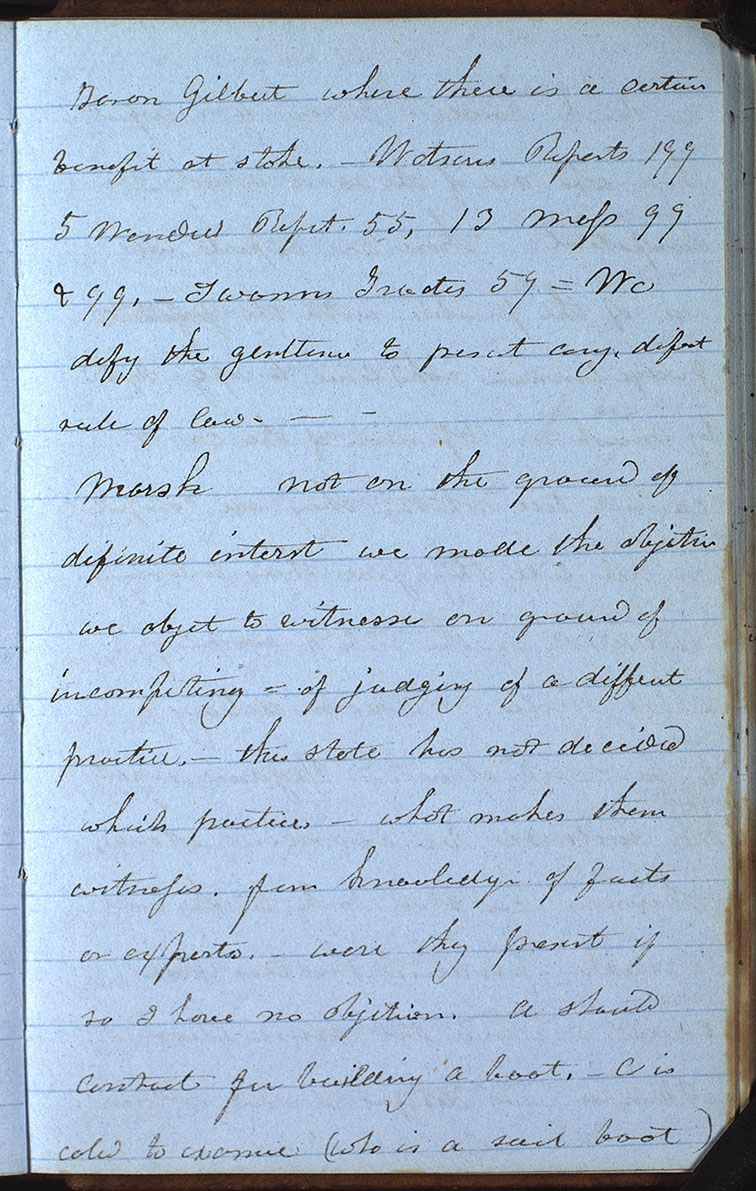 Baron Gilbert where there is a certain
benefit at stake. - Watsons Reports 199
5 Wendell Report. 55, 13 Mass 99
& 99, - Swanns Practes 59 = We
defy the gentlemen to present any different
rule of law - — -
Marsh not on the ground of
definite interst we made the objection
we objet to witnesse on ground of
incompeting = of judging of a different
practice. - this state has not decided
which practice - what makes them
witnesses. from knowledge of facts
or experts. - were they present if
so I have no objition. A should
contract for building a boat. - C is
caled to examine (who is a sail boat)